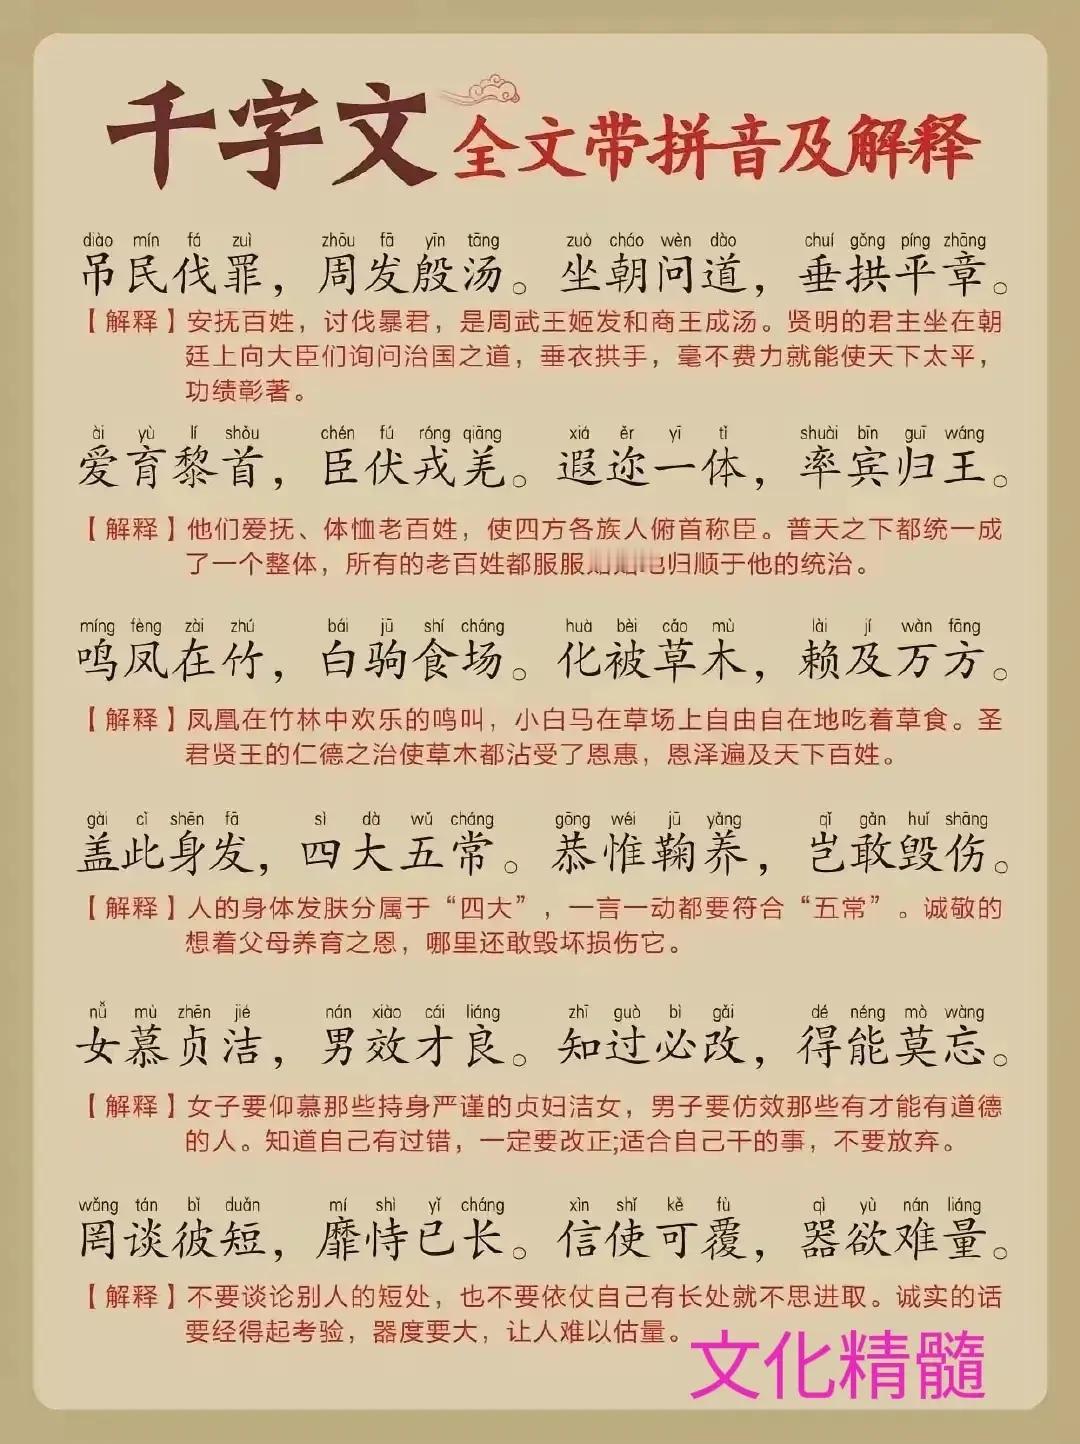 千字文 全文带拼音及解释
diào mín fá zuì zhōu fā yīn tāng zuò cháo wèn dào chuí gǒng píng zhāng
吊民伐罪，周发殷汤。坐朝问道，垂拱平章。
【解释】安抚百姓，讨伐暴君，是周武王姬发和商王成汤。贤明的君主坐在朝
廷上向大臣们询问治国之道，垂衣拱手，毫不费力就能使天下太平，
功绩彰著。
ài yù lí shǒu chén fú róng qiāng xiá ěr yī tǐ shuài bīn guī wáng
爱育黎首，臣伏戎羌。遐迩一体，率宾归王。
【解释】他们爱抚、体恤老百姓，使四方各族人俯首称臣。普天之下都统一成
了一个整体，所有的老百姓都服服归顺于他的统治。
míng fèng zài zhú bái jū shí cháng huà bèi cǎo mù lài jí wàn fāng
鸣凤在竹，白驹食场。化被草木，赖及万方。
【解释】凤凰在竹林中欢乐的鸣叫，小白马在草场上自由自在地吃着草食。圣
君贤王的仁德之治使草木都沾受了恩惠，恩泽遍及天下百姓。
gài cǐ shēn fā sì dà wǔ cháng gōng wéi jū yǎng qǐ gǎn huǐ shāng
盖此身发，四大五常。恭惟鞠养，岂敢毁伤。
【解释】人的身体发肤分属于“四大”，一言一动都要符合“五常”。诚敬的
想着父母养育之恩，哪里还敢毁坏损伤它。
nǚ mù zhēn jié nán xiào cái liáng zhī guò bì gǎi dé néng mò wàng
女慕贞洁，男效才良。知过必改，得能莫忘。
【解释】女子要仰慕那些持身严谨的贞妇洁女，男子要仿效那些有才能有道德
的人。知道自己有过错，一定要改正;适合自己干的事，不要放弃。
wǎng tán bǐ duǎn mí shì yǐ cháng xìn shǐ kě fù qì yù nán liáng
罔谈彼短，靡恃已长。信使可覆，器欲难量。
【解释】不要谈论别人的短处，也不要依仗自己有长处就不思进取。诚实的话
要经得起考验，器度要大，让人难以估量。
文化精髓